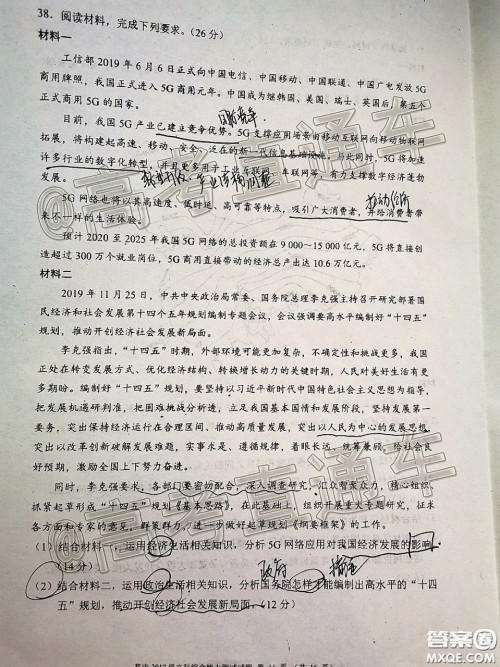 38. 阅读材料，完成下列要求。（26分）
材料一
工信部 2019 年 6 月 6 日正式向中国电信、中国移动、中国联通、中国广电发放 5G
商用牌照，我国正式进入 5G 商用元年。中国成为继韩国、美国、瑞士、英国后，第五个
正式商用 5G 的国家。
目前，我国 5G 产业已建立竞争优势。5G 支撑应用场景由移动互联网向移动物联网
拓展，将构建起高速、移动、安全、泛在的新一代信息基础设施。与此同时，5G 将加速
许多行业的数字化转型，并且更多用于工业互联网、车联网等，有力支撑数字经济蓬勃
发展。
5G 网络也将以其高速度、低时延、高可靠等特点，吸引广大消费者，并给消费者带
来不一样的生活体验。
预计 2020 至 2025 年我国 5G 网络的总投资额在 9 000～15 000 亿元，5G 将直接创
造超过 300 万个就业岗位，5G 商用直接带动的经济总产出达 10.6 万亿元。
材料二
2019 年 11 月 25 日，中共中央政治局常委、国务院总理李克强主持召开研究部署国
民经济和社会发展第十四个五年规划编制专题会议，会议强调要高水平编制“十四
五”规划，推动开创经济社会发展新局面。
李克强指出，“十四五”时期，外部环境可能更加复杂，不确定性和挑战更多，我国正
处在转变发展方式、优化经济结构、转换增长动力的关键时期，人民对美好生活有更
多期盼。编制好“十四五”规划，要坚持以习近平新时代中国特色社会主义思想为指导，
把发展机遇研判准，把困难挑战分析透，立足我国基本国情和发展阶段，坚持发展第一
要务，突出保持经济运行在合理区间、推动高质量发展，突出以人民为中心的发展思想，
突出以改革创新破解发展难题，实事求是、遵循规律，着眼长远、统筹兼顾，绘出发展
好前景，激励全国上下努力奋进。
同时，李克强要求，各部门要密切配合，深入调查研究，汇众智聚众力，精心组织
抓紧起草形成“十四五”规划《基本思路》，在此基础上，组织开展重大专题研究，征求
各方面和专家的意见，群策群力，进一步做好起草规划《纲要框架》的工作。
（1）结合材料一，运用经济生活相关知识，分析 5G 网络应用对我国经济发展的影响。
（14分）
（2）结合材料二，运用政治生活相关知识，分析国务院怎样才能编制出高水平的“十四
五”规划，推动开创经济社会发展新局面。（12分）
@高考直通车
@高考直通车
答案圈
MXQE.COM